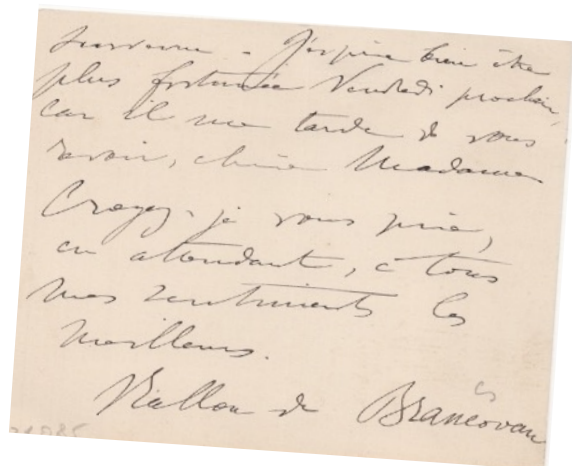 J'espère bien être
plus fortunée Vendredi prochain,
car il me tarde de vous
revoir, chère Madame
Croyez, je vous prie,
en attendant, à tous
mes sentiments les
meilleurs.
de Brancovan